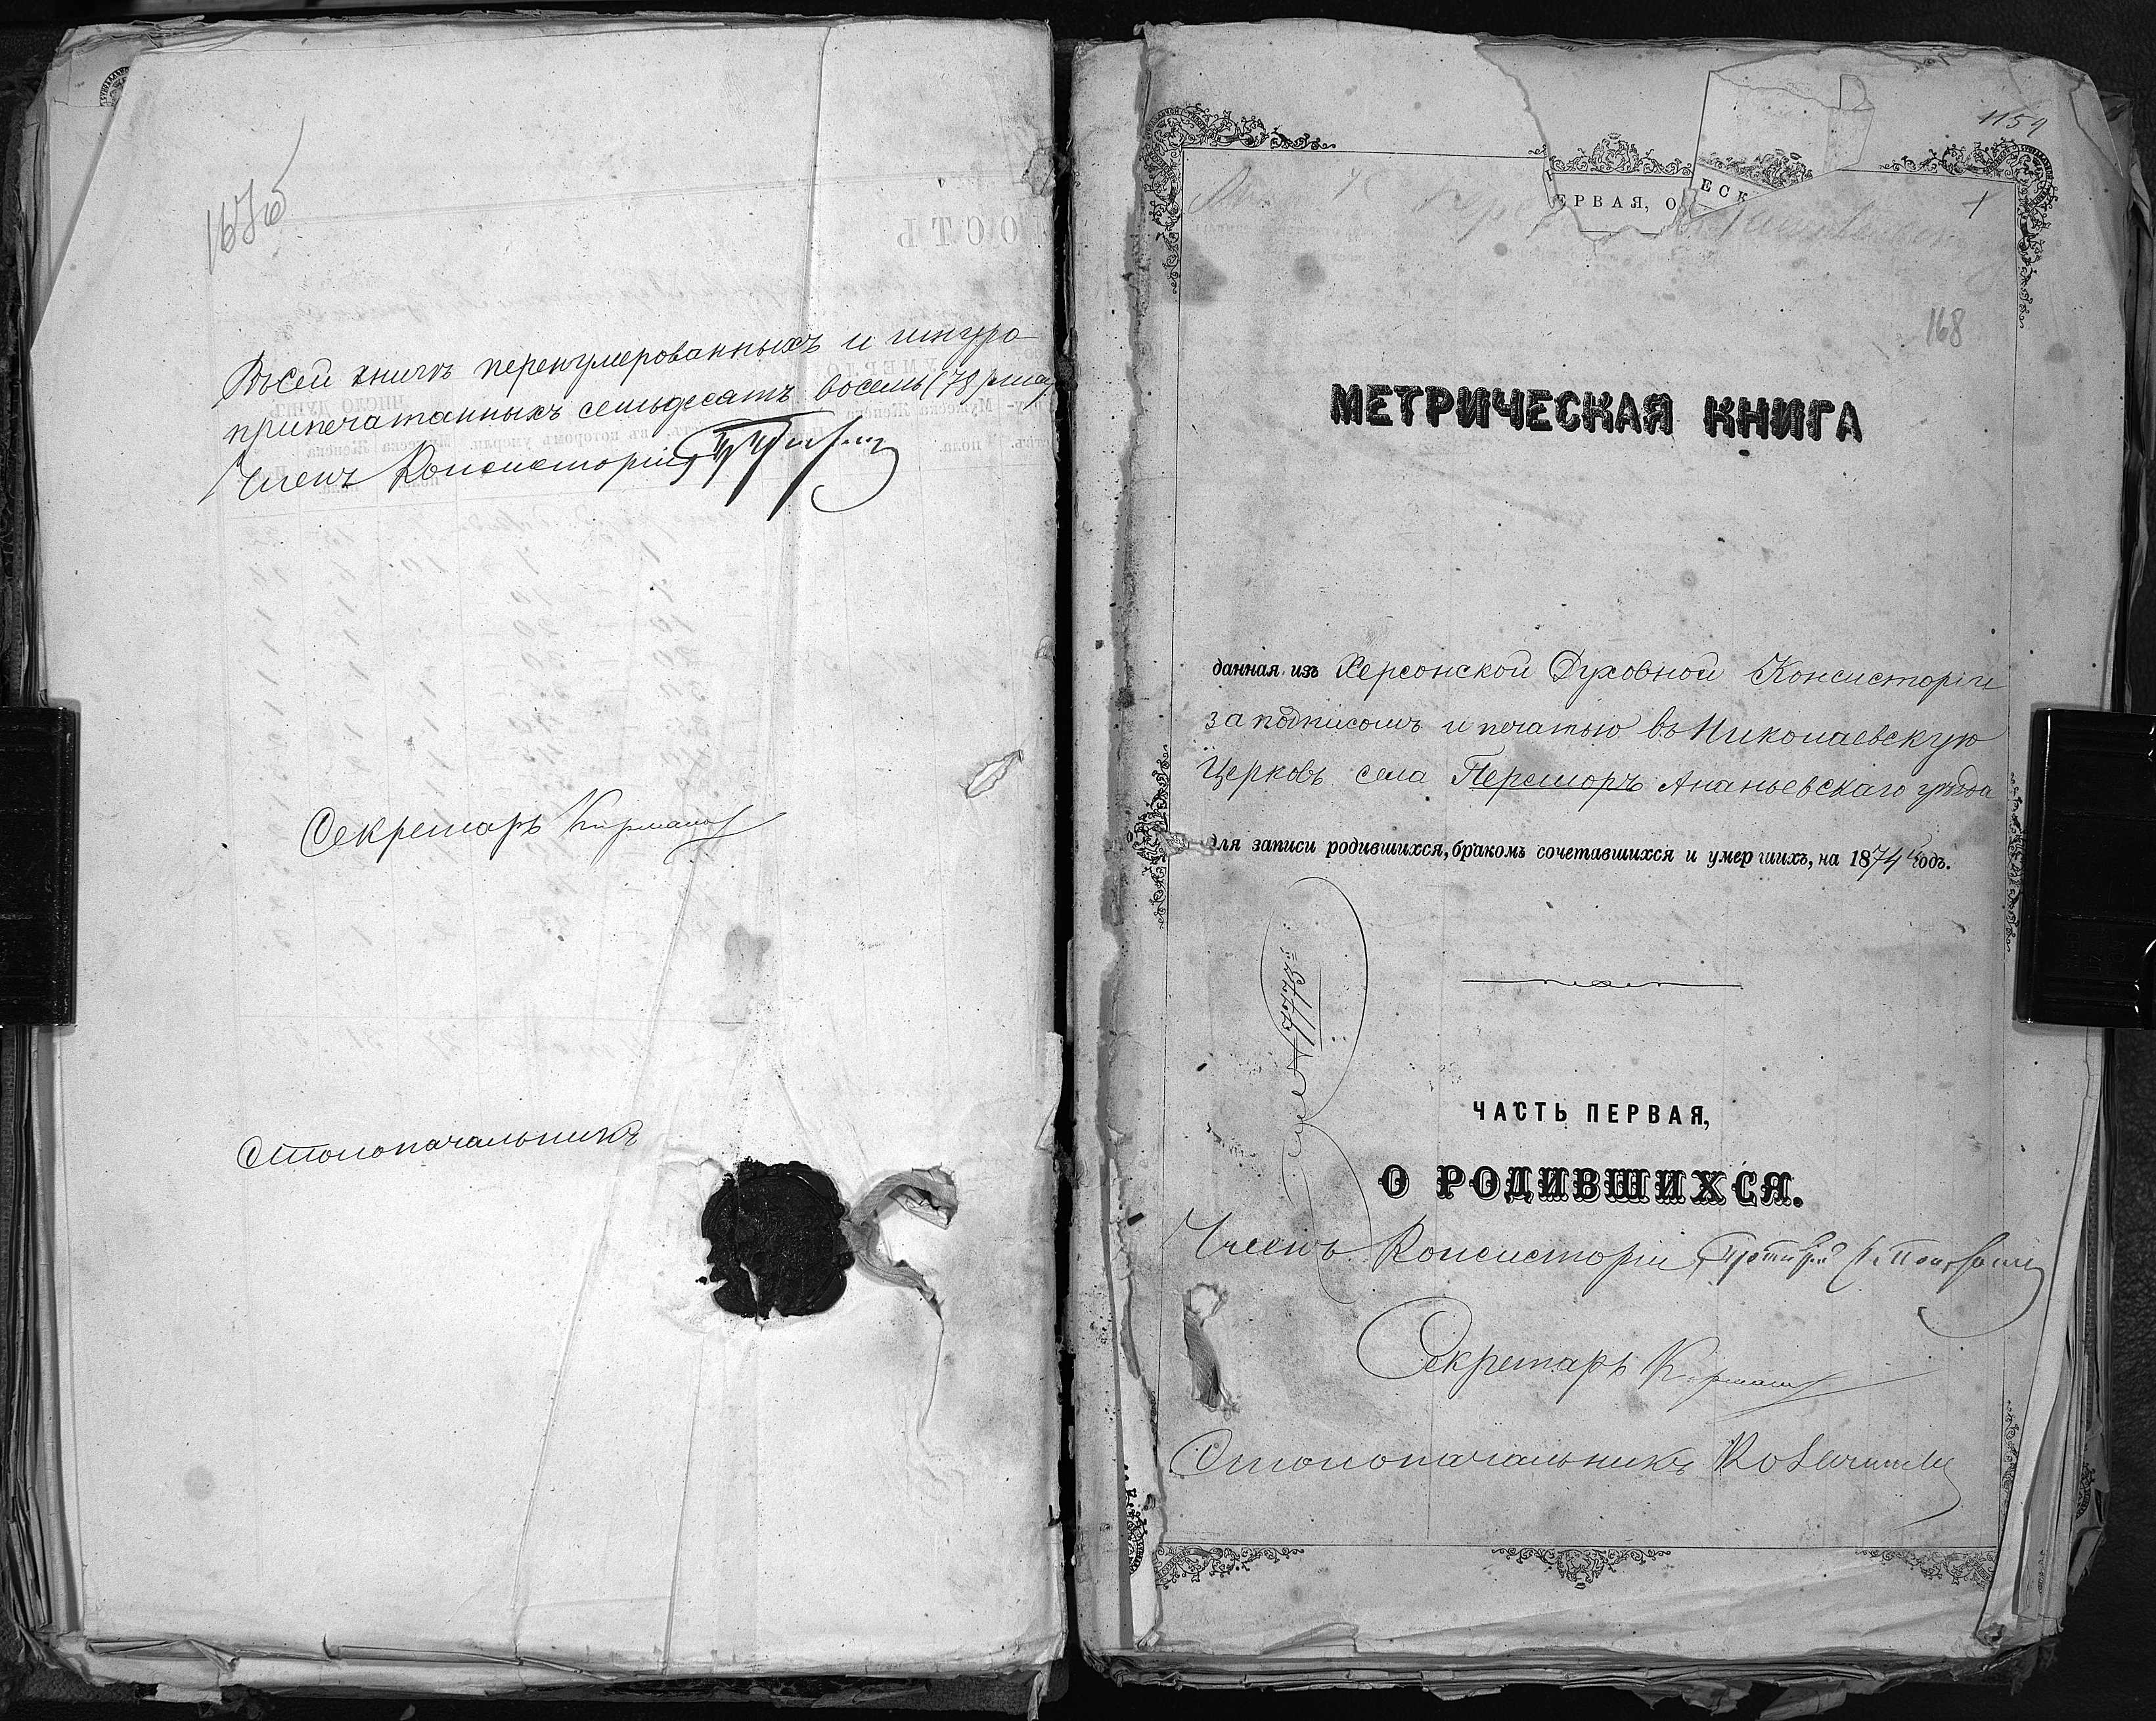 167об
Въ сей книгѣ перенумерованныхъ и шнуро
припечатанныхъ семьдесятъ восемь (78) лист.
Членъ Консисторіи
Секретарь
Столоначальникъ
1159
ЕСК
ЕРВАЯ, О
168
МЕТРИЧЕСКАЯ КНИГА
данная изъ Херсонской Духовной Консисторіи
за подписомъ и печатью въ Николаевскую
Церковь села Перешоръ Ананьевскаго уѣзда
для записи родившихся, бракомъ сочетавшихся и умершихъ, на 1874 годъ.
ЧАСТЬ ПЕРВАЯ,
О РОДИВШИХСЯ.
Членъ Консисторіи Протоіерей
Секретарь
Столоначальникъ